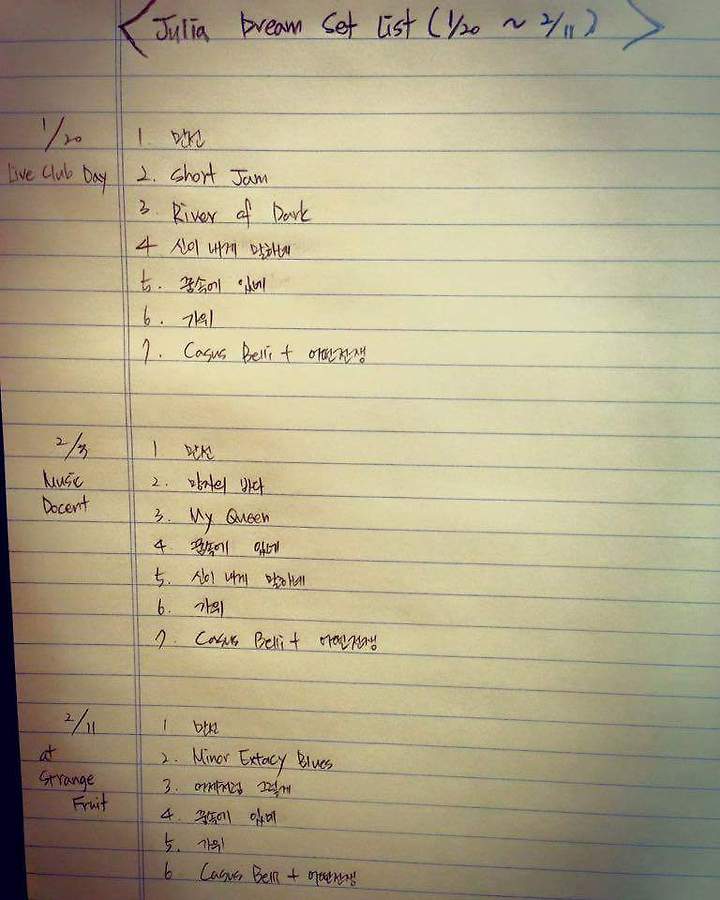 < Julia Dream Set List (1/20 ~ 2/11) >
1/20
Live Club Day
1. 만선
2. Short Jam
3. River of Dark
4 신이 내게 말하네
5. 꿈속에 있네
6. 가위
7. Casus Belli + 어떤전쟁
2/3
Music
Docent
1 만선
2. 망자의 바다
3. My Queen
4. 꿈속에 있네
5. 신이 내게 말하네
6. 가위
7. Casus Belli + 어떤전쟁
2/11
at
Strange
Fruit
1 만선
2. Minor Extacy Blues
3. 어제처럼 그렇게
4. 꿈속에 있네
5. 가위
6 Casus Belli + 어떤전쟁